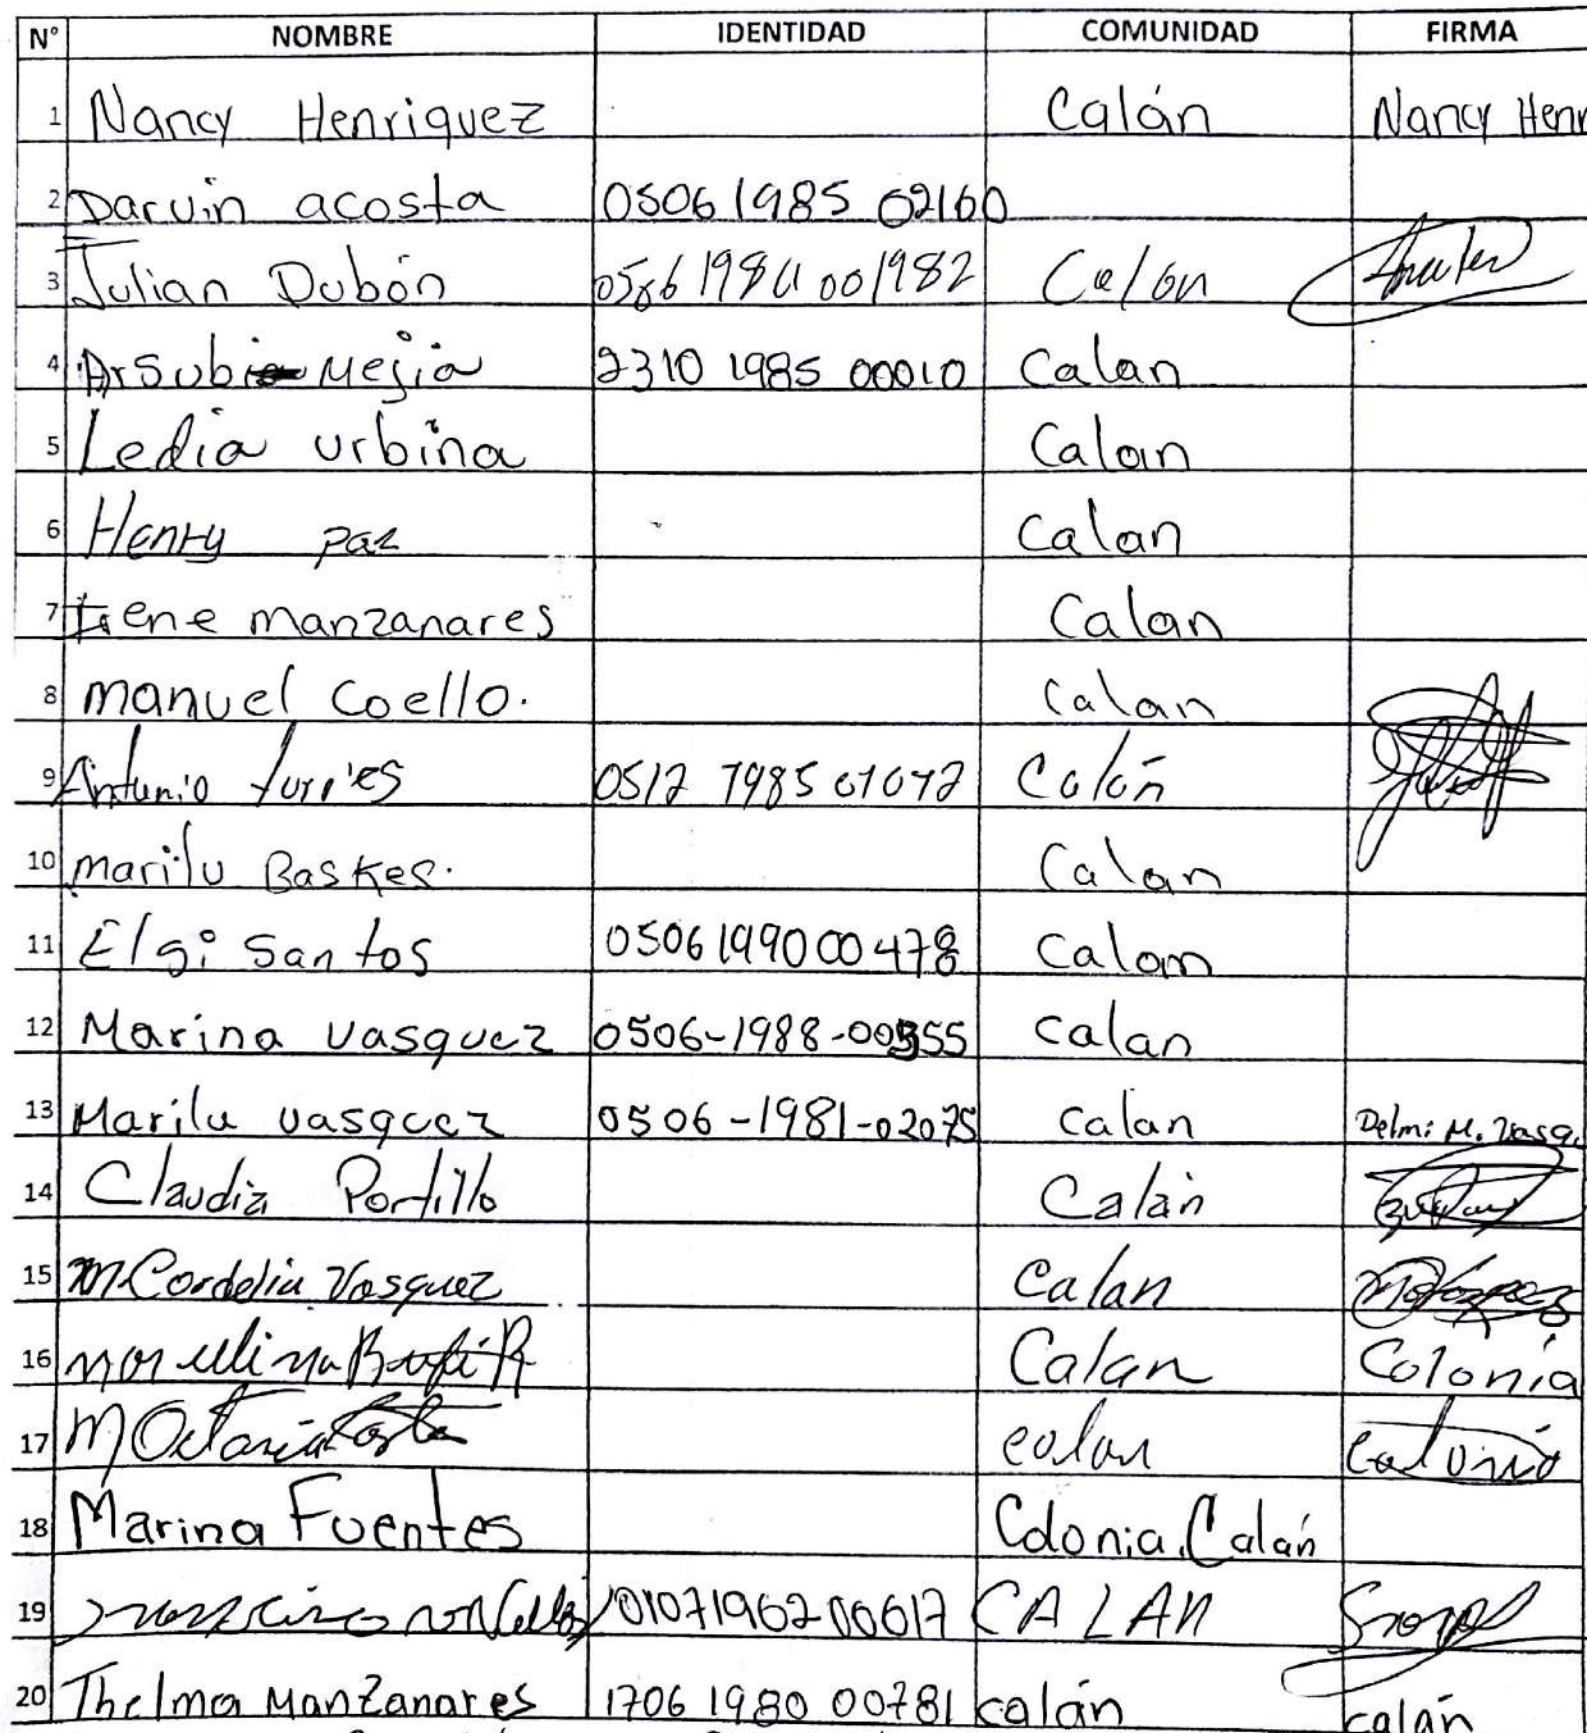 N° NOMBRE IDENTIDAD COMUNIDAD FIRMA
1 Nancy Henriquez Calán Nancy Henr
2 Darwin acosta 0506 1985 02160
3 Julian Dubón Calan
4 Mejia 2310 1985 00010 Calan
5 Ledia urbina Calan
6 Henry paz Calan
7 Irene manzanares Calan
8 manuel Coello. Calan
9 Antunio Calán
10 marilu Baskes. Calan
11 Elsi Santos 0506 1990 00478 Calan
12 Marina vasquez 0506-1988-00355 Calan
13 Marilu vasquez 0506-1981-02075 calan Delmi M. Vasq.
14 Claudia Portillo Calán
15 M Cordelia Vasquez Calan
16 Calan Colonia
17 M Octavia calan
18 Marina Fuentes Colonia Calán
19 0107196200617 CALAN
20 Thelma Manzanares 1706 1980 00781 calán calán